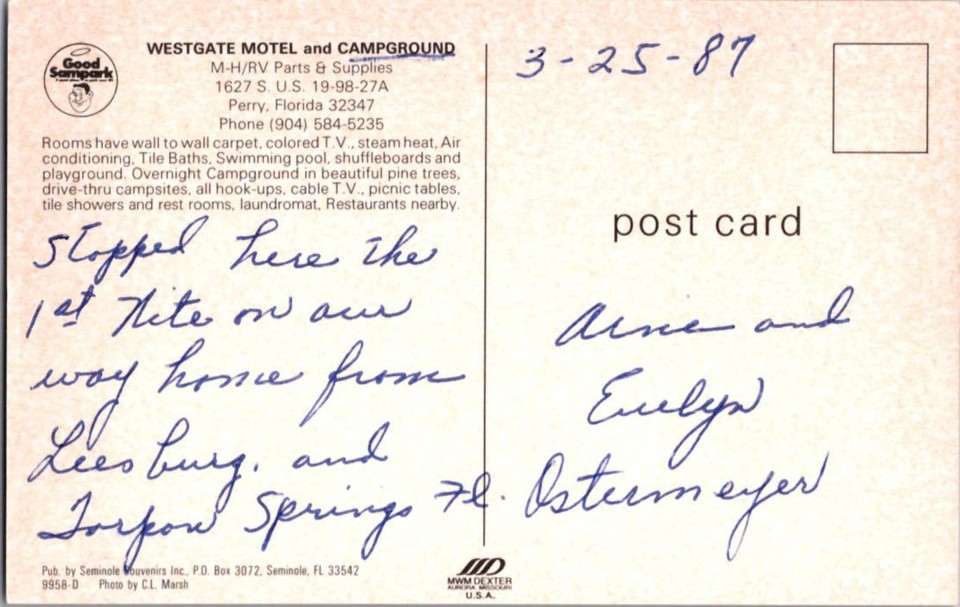 Good
Sampark
WESTGATE MOTEL and CAMPGROUND
M-H/RV Parts & Supplies
1627 S. U.S. 19-98-27A
Perry, Florida 32347
Phone (904) 584-5235
Rooms have wall to wall carpet, colored T.V., steam heat, Air
conditioning, Tile Baths, Swimming pool, shuffleboards and
playground. Overnight Campground in beautiful pine trees,
drive-thru campsites, all hook-ups, cable T.V., picnic tables,
tile showers and rest rooms, laundromat, Restaurants nearby.
Stopped here the
1st Nite on our
way home from
Leesburg. and
Tarpon Springs Fl.
Pub. by Seminole Souvenirs Inc., P.O. Box 3072, Seminole, FL 33542
9958-D Photo by C.L. Marsh
3-25-87
post card
Arnie and
Evelyn
Ostermeyer
MWM DEXTER
AURORA, MISSOURI
U.S.A.